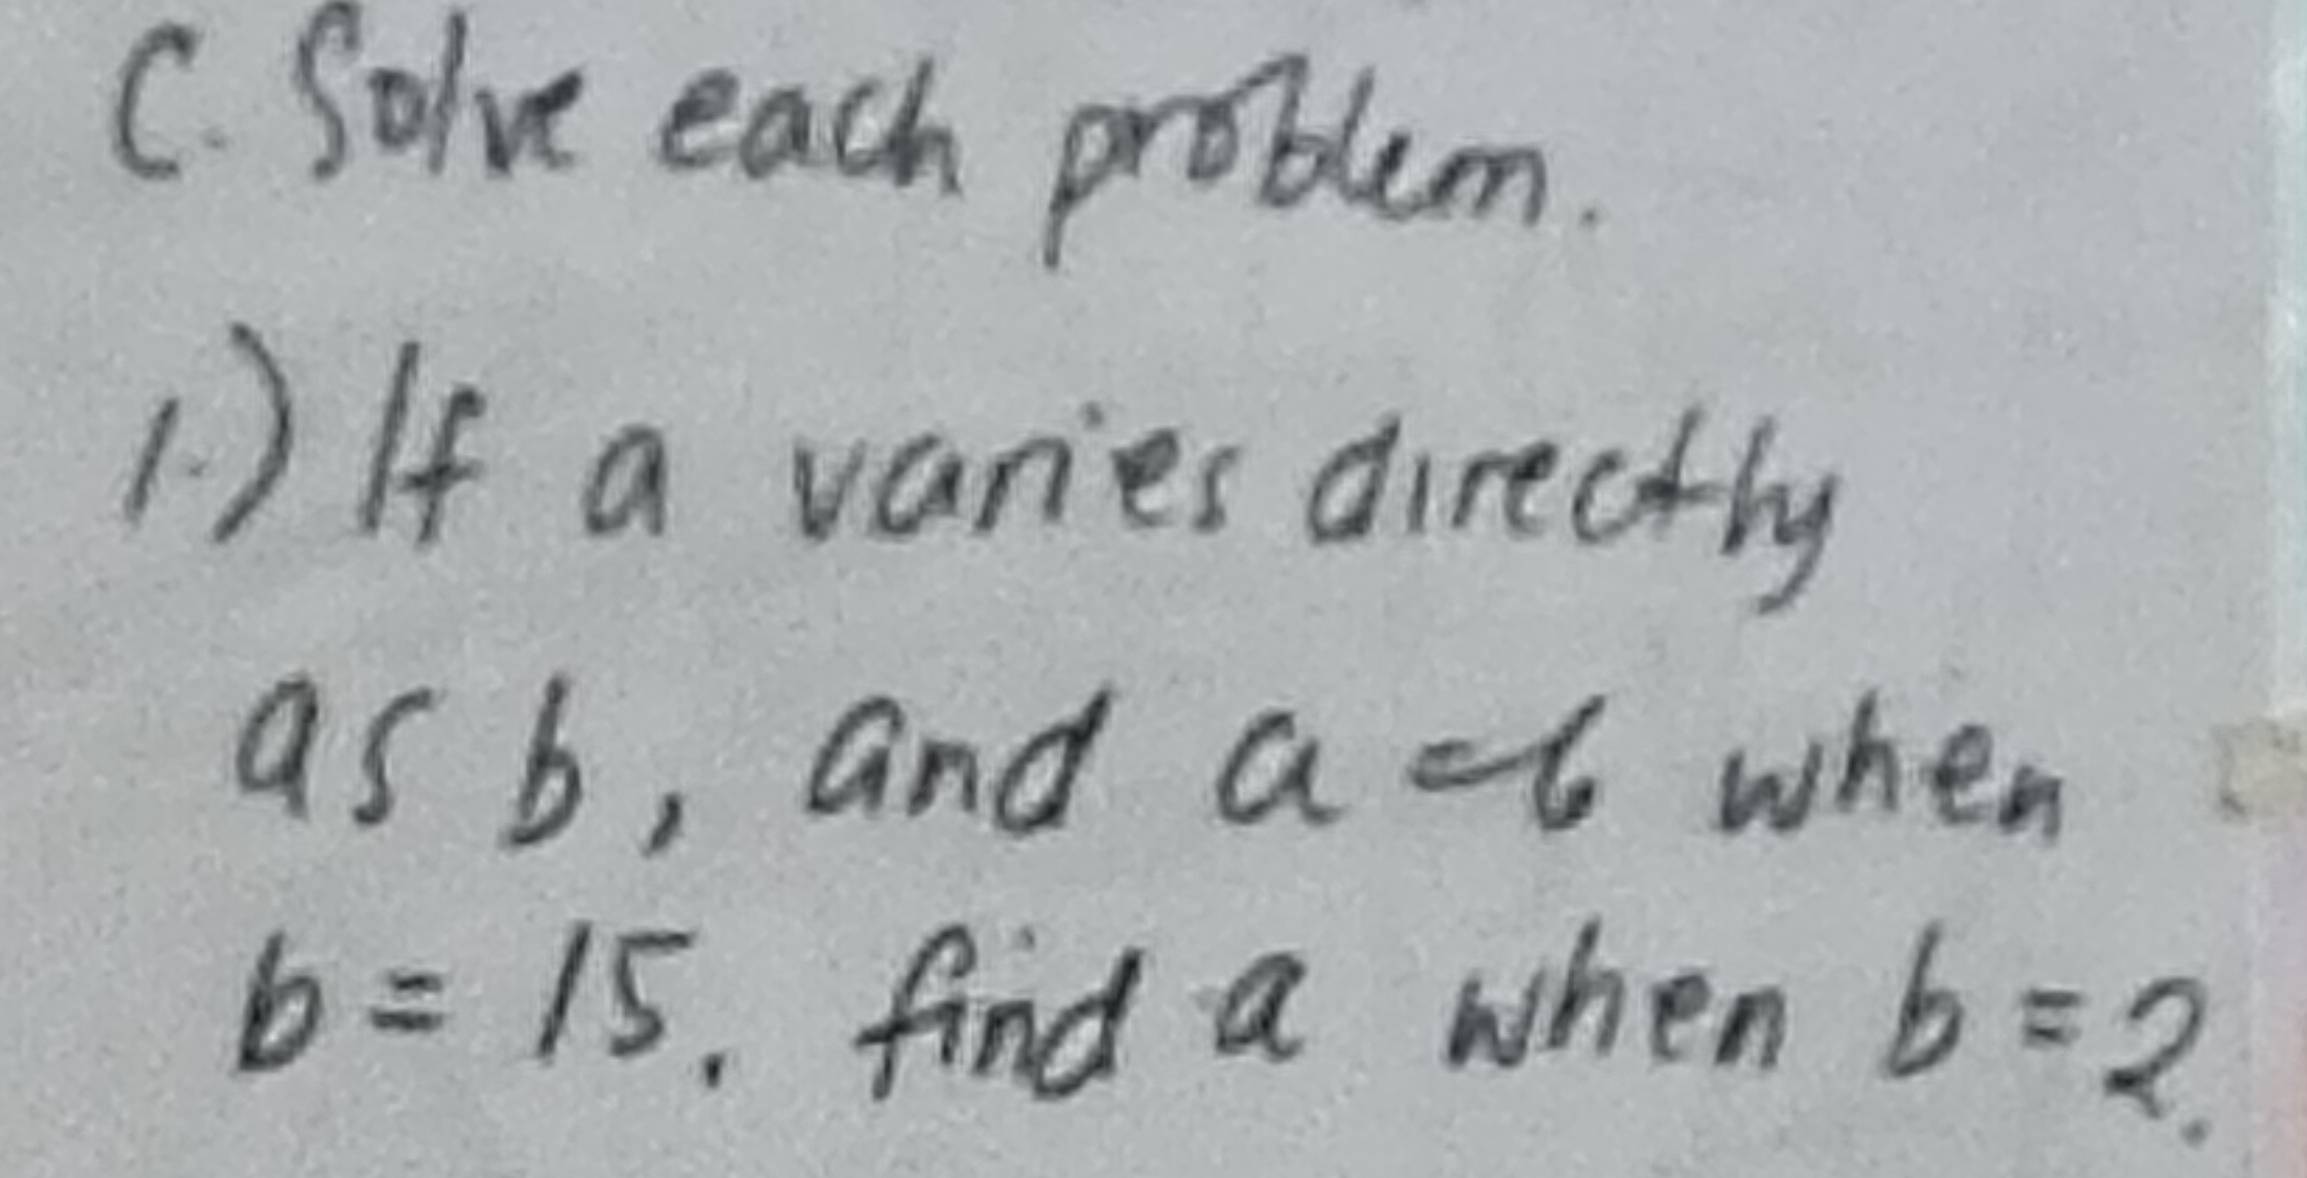 C. Solve each problem.
1.) If a varies directly
as b, and a = 6 when
b = 15. find a when b = 2.